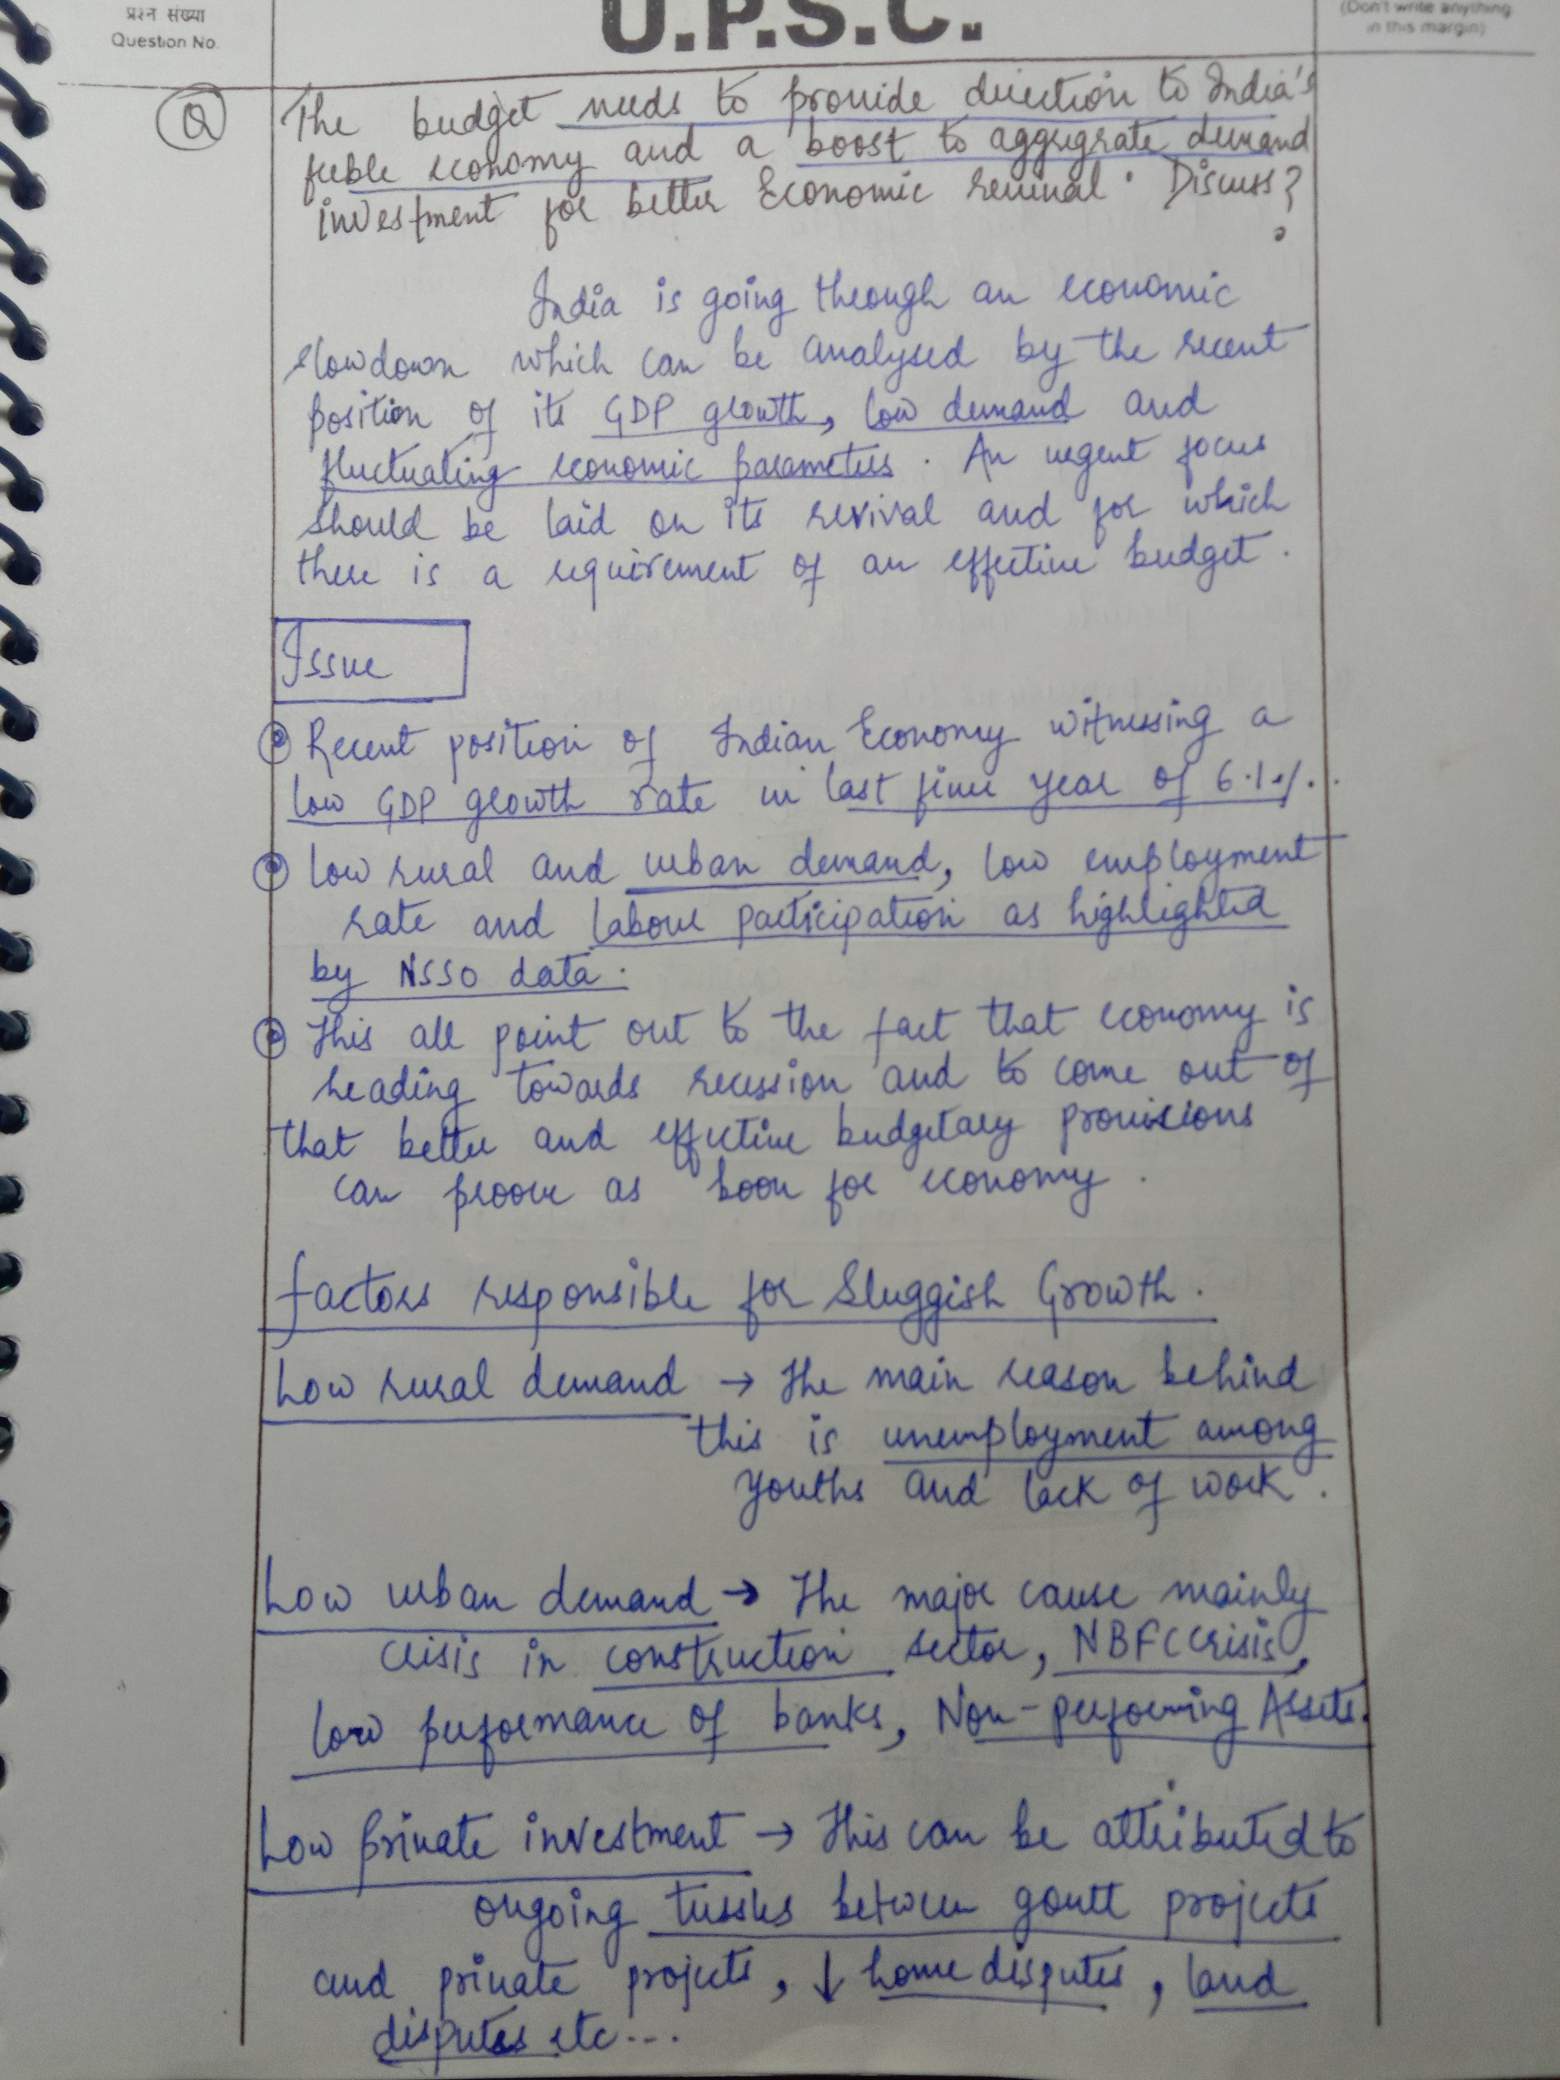 प्रश्न संख्या
Question No.
U.P.S.C.
(Don't write anything
in this margin)
Q
The budget needs to provide direction to India's
feeble economy and a boost to aggregrate demand
investment for better Economic revival. Discuss?
India is going through an economic
slowdown which can be analysed by the recent
position of its GDP growth, low demand and
fluctuating economic parameters. An urgent focus
should be laid on its revival and for which
there is a requirement of an effective budget.
Issue
Recent position of Indian Economy witnessing a
low GDP growth rate in last five year of 6.1%.
Low rural and urban demand, low employment
rate and labour participation as highlighted
by NSSO data.
This all point out to the fact that economy is
heading towards recession and to come out of
that better and effective budgetary provisions
can proove as boon for economy.
factors responsible for Sluggish Growth.
Low rural demand → The main reason behind
this is unemployment among
youths and lack of work.
Low urban demand → The major cause mainly
crisis in construction sector, NBFC crisis,
low performance of banks, Non-performing Assets.
Low private investment → This can be attributed to
ongoing tussles between govtt projects
and private projects, ↓ home disputes, land
disputes etc...